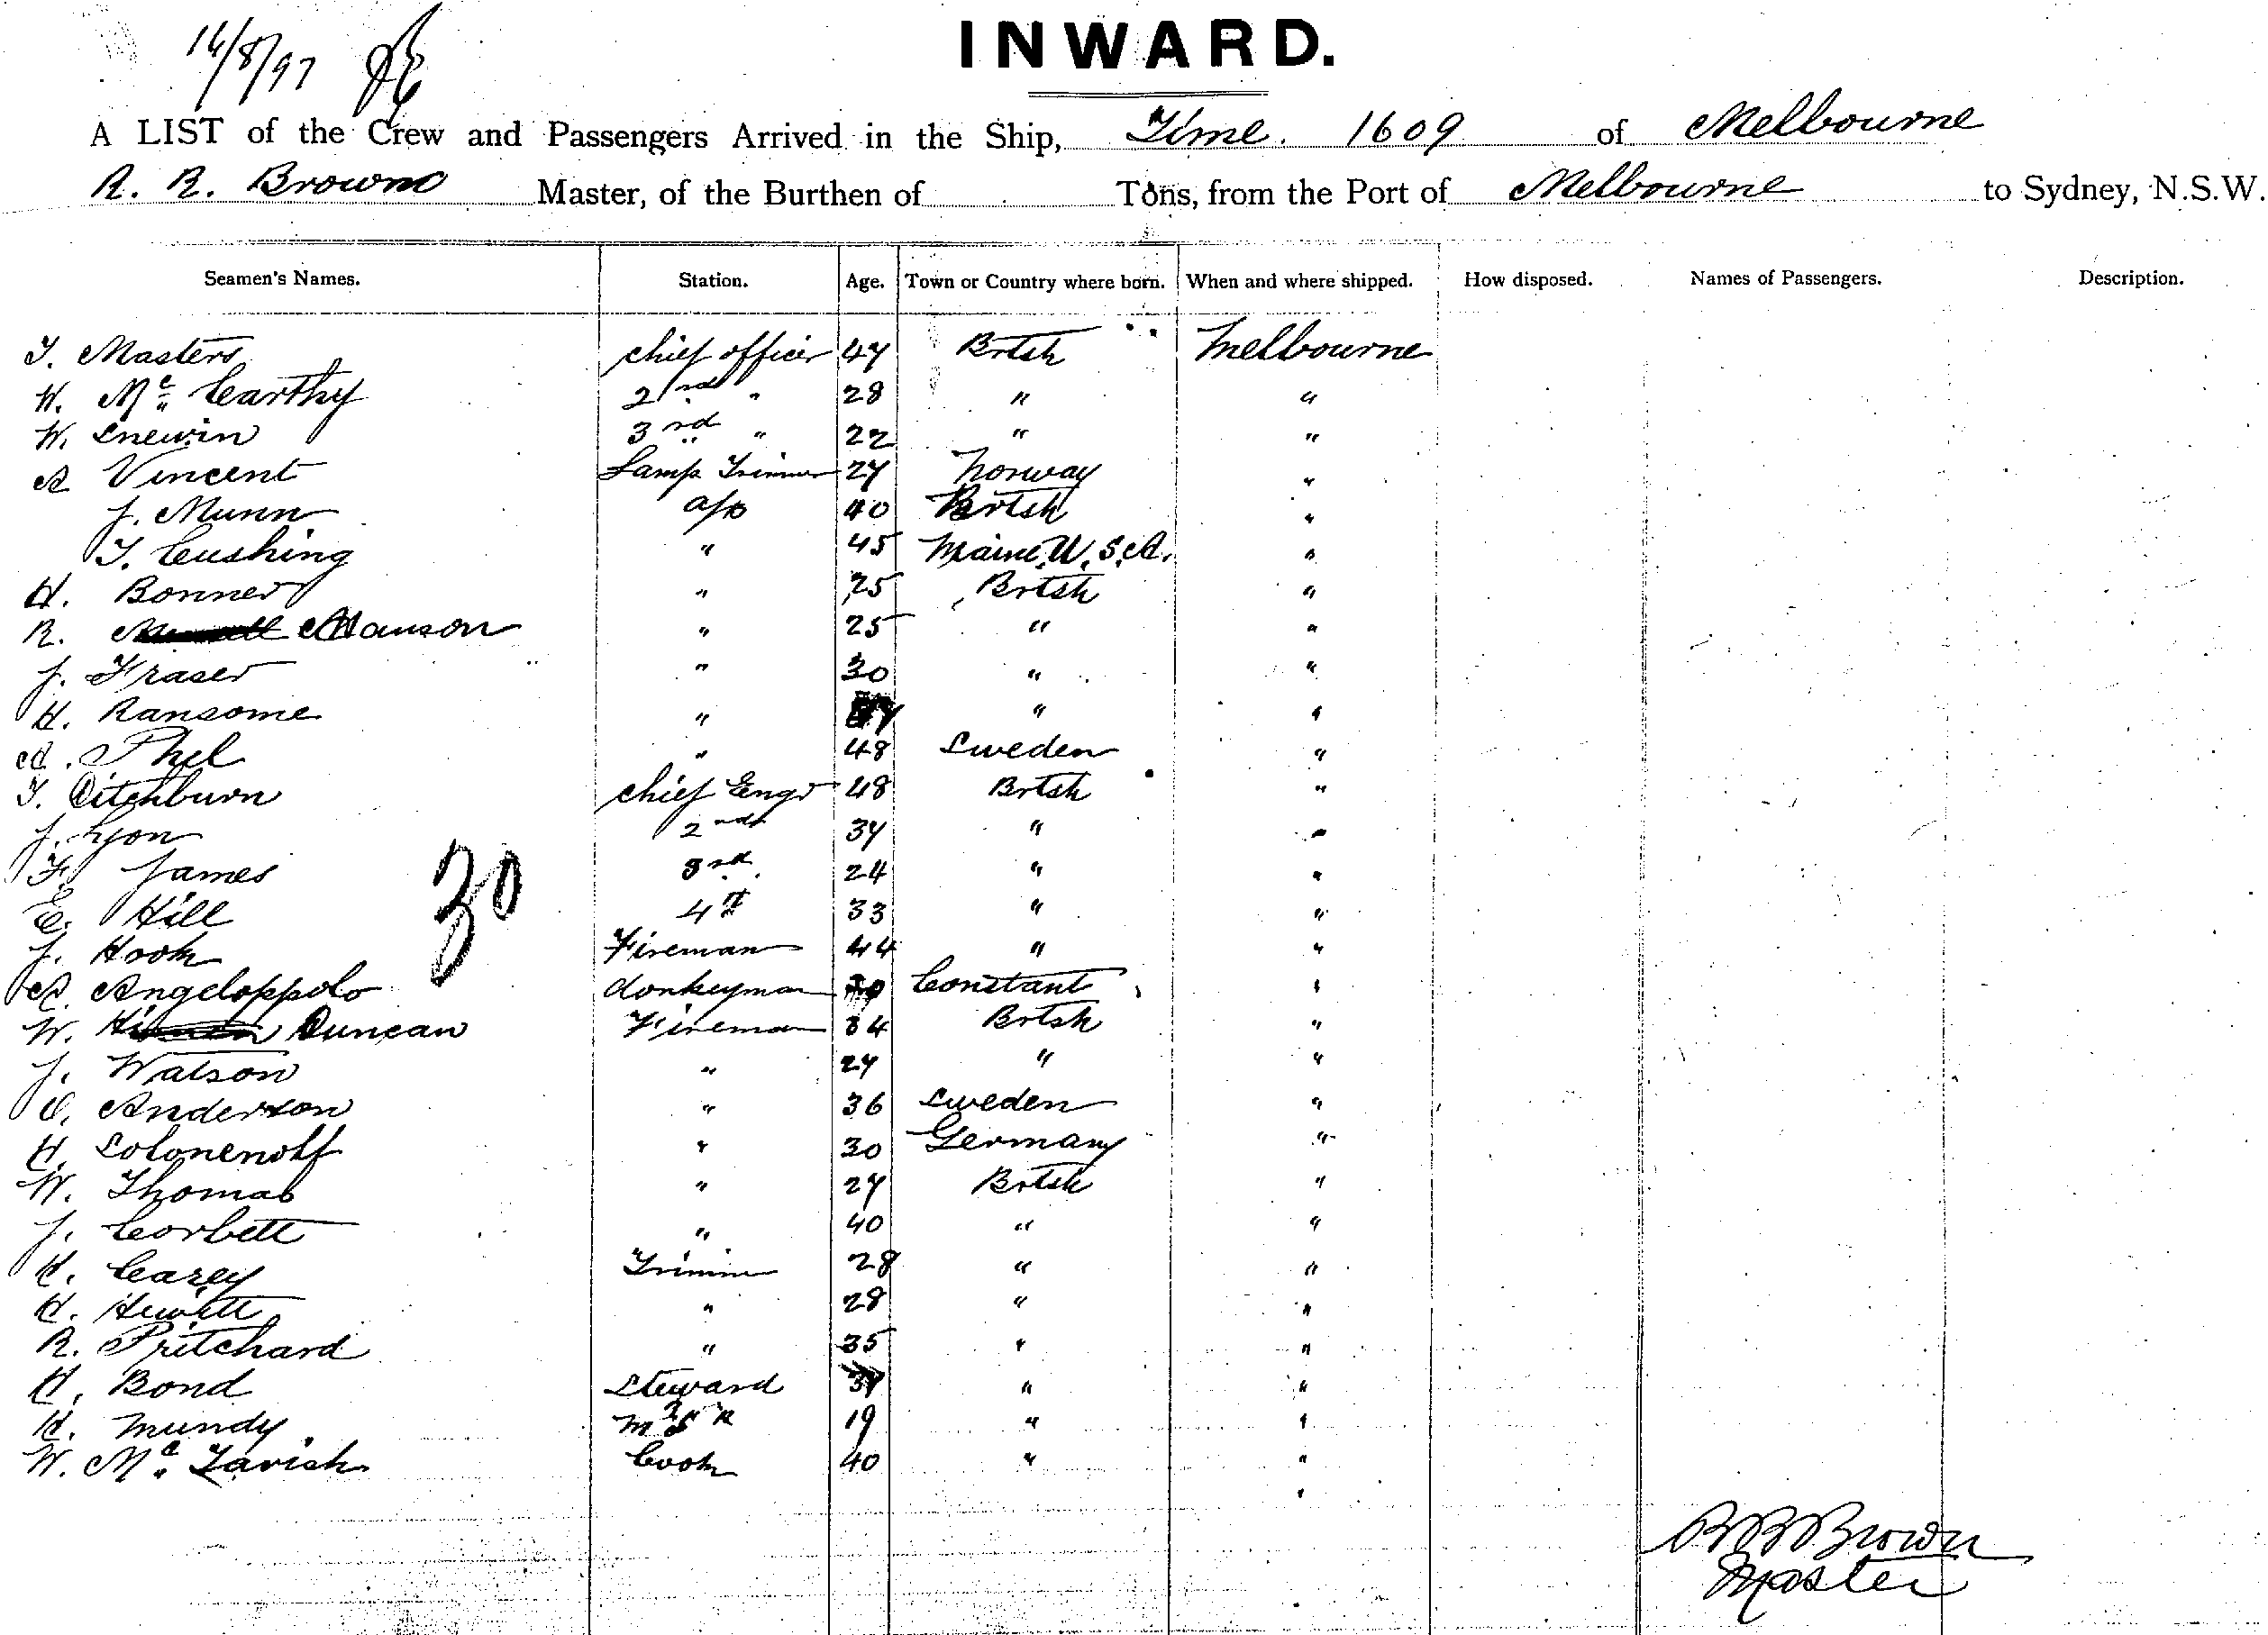 16/8/97
INWARD.
A LIST of the Crew and Passengers Arrived in the Ship, Time. 1609 of Melbourne
R. R. Brown Master, of the Burthen of Tons, from the Port of Melbourne to Sydney, N.S.W.
Seamen's Names. Station. Age. Town or Country where born. When and where shipped. How disposed. Names of Passengers. Description.
T. Masters chief officer 47 Brtsh Melbourne
W. Mc Carthy 2nd " 28 " "
W. Snewin 3rd " 22 " "
A Vincent Lamp Trimmer 27 Norway "
J. Munn a/b 40 Brtsh "
T. Cushing " 45 Maine, U.S.A. "
H. Bonner " 25 Brtsh "
R. Manson " 25 " "
J. Fraser " 30 " "
H. Ransome " " "
A. Phel " 48 Sweden "
T. Ditchburn chief Engr 48 Brtsh "
J. Lyon 2nd 37 " "
F. James 3rd 24 " "
E. Hill 4th 33 " "
30
J. Hook Fireman 44 " "
A. Angeloppolo donkeyman Constant "
W. Duncan Fireman 34 Brtsh "
J. Watson " 27 " "
O. Anderson " 36 Sweden "
H. " 30 Germany "
W. Thomas " 27 Brtsh "
J. Corbett " 40 " "
H. Carey Trimmer 28 " "
H. Hewitt " 28 " "
R. Pritchard " 35 " "
H. Bond Steward " "
H. Mundy 19 " "
W. Mc Tavish Cook 40 " "
"
R R Brown
Master